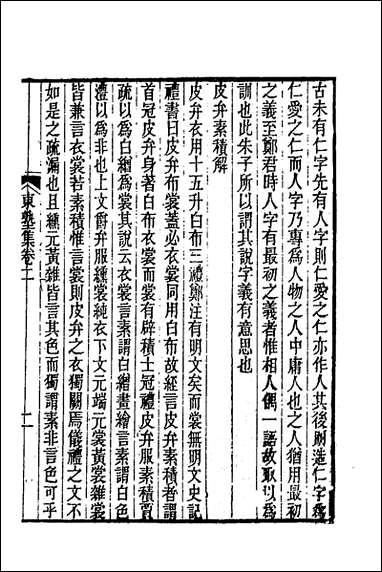 古未有仁字先有人字則仁愛之仁亦作人其後剏造仁字爲
仁愛之仁而人字乃專爲人物之人中庸人也之人猶用最初
之義至鄭君時人字有最初之義者惟相人偶一語故取以爲
訓也此朱子所以謂其說字義有意思也
皮弁素積解
皮弁衣用十五升白布三禮鄭注有明文矣而裳無明文史記
禮書曰皮弁布裳蓋必衣裳同用白布故經言皮弁素積者謂
首冠皮弁身著白布衣裳而裳有辟積士冠禮皮弁服素積賈
疏以爲白繒爲裳其說云衣裳言素謂白繒畫繪言素謂白色
澧以爲非也上文爵弁服纁裳純衣下文元端元裳黃裳雜裳
皆兼言衣裳若素積惟言裳則皮弁之衣獨闕焉儀禮之文不
如是之疏漏也且纁元黃雜皆言其色而獨謂素非言色可乎
東塾集卷一